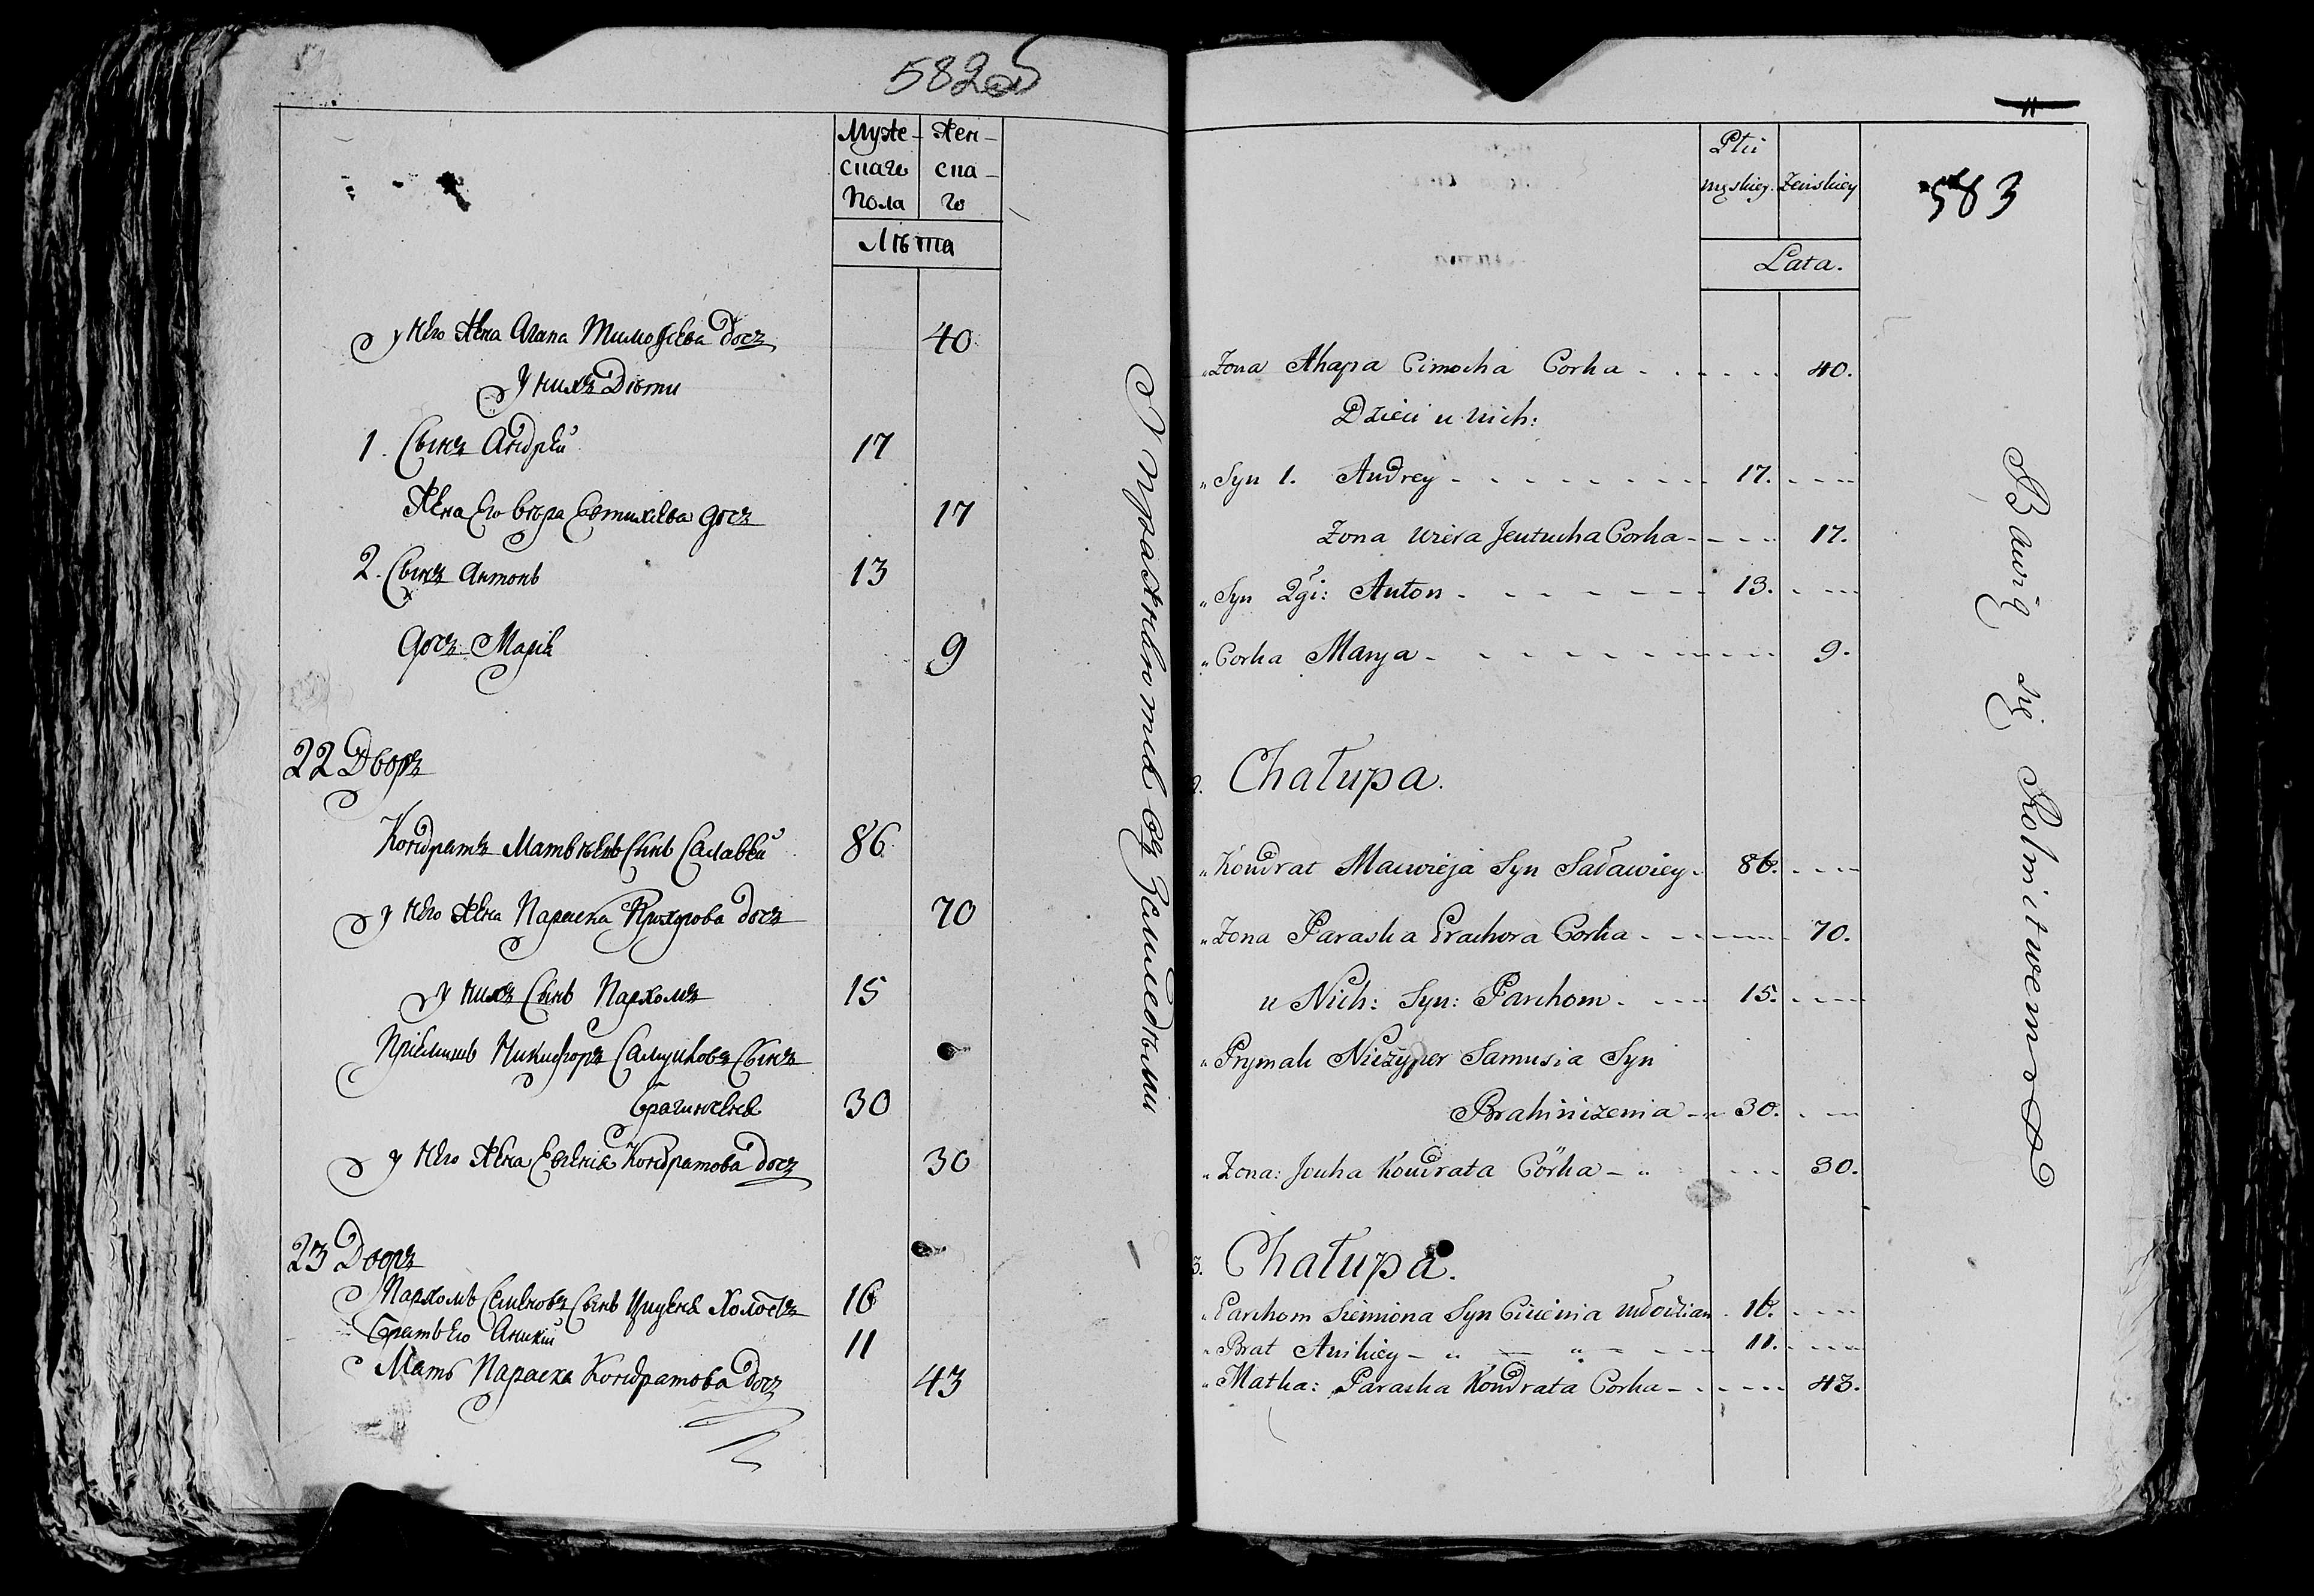 582об
Муже- Жен-
скаго ска-
Пола го
Лѣта
у него жена Агапа Тимофеева дочъ 40
У нихъ Дѣти
1. Сынъ Андрей 17
Жена его Вѣра Евтихиева дочъ 17
2. Сынъ Антонъ 13
дочъ Марiя 9
22 Дворъ
Кондратъ Матвѣевъ Сынъ Салавей 86
у него жена Параска Прохорова дочъ 70
у нихъ Сынъ Пархомъ 15
Прiемышъ Никифоръ Самуиловъ Сынъ
Брагинченя 30
у него жена Евгенiя Кондратова дочъ 30
23 Дворъ
Пархомъ Семеновъ Сынъ Циценя Холостъ 16
Братъ его Аникiй 11
Мать Параска Кондратова дочъ 43
Упражняются въ Земледѣлии
11
583
Płci
męskiey. Żenskiey
Lata.
Żona Ahapa Cimocha Corka 40.
Dzieci u nich:
Syn 1. Andrey 17.
Żona Wiera Jeutucha Corka 17.
Syn 2gi: Anton 13.
Corka Marya 9.
2. Chałupa.
Kondrat Maciwieja Syn Saławiey 86.
Żona Paraska Prachora Corka 70.
u Nich: Syn: Parchom 15.
Prymak Nieżyper Samusia Syn
Brahinizenia 30.
Żona: Jouha Kondrata Córka 30.
3. Chałupa.
Parchom Siemiona Syn Cicienia Młodzian 16.
Brat Anikiey 11.
Matka: Paraska Kondrata Corka 43.
Bawią się Rolnitwem